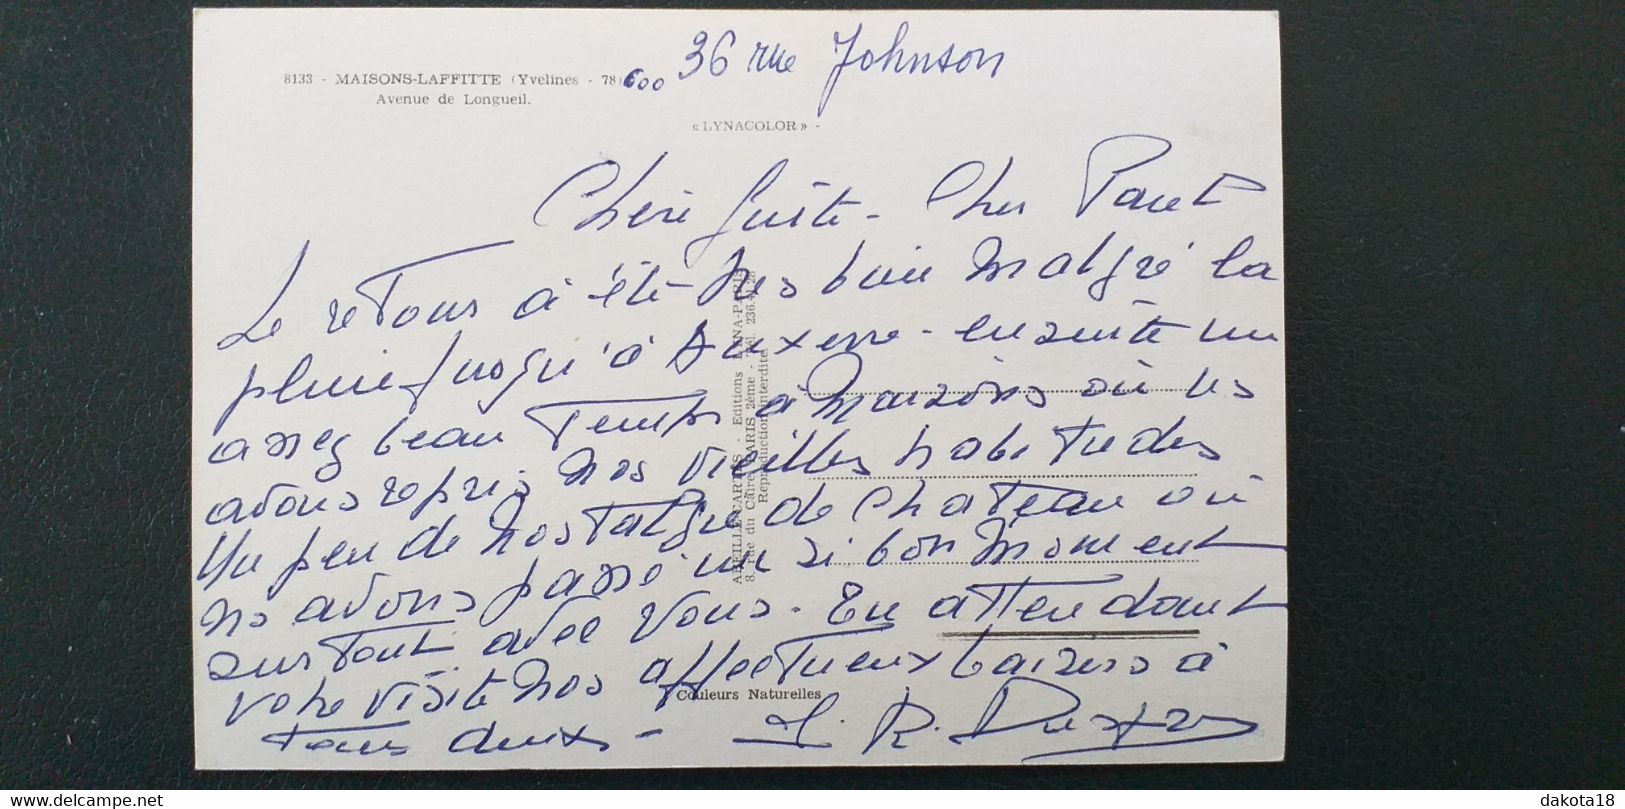 36 rue Johnson
8133 - MAISONS-LAFFITTE (Yvelines - 78) 600
Avenue de Longueil.
« LYNACOLOR » -
Chère Cher
Le retour a été très bien malgré la
pluie jusqu'à Auxerre - ensuite un
assez beau temps à Maisons où ns
avons repris nos vieilles habitudes
Un peu de nostalgie de Chateau où
ns avons passé un si bon moment
surtout avec vous. En attendant
votre visite nos affectueux baisers à
tous deux - R.
ABEILLE-CARTES - Editions LYNA-PARIS
8, rue du Caire, PARIS 2ème - Tél. 236.41.28
Reproduction interdite
Couleurs Naturelles
dakota18